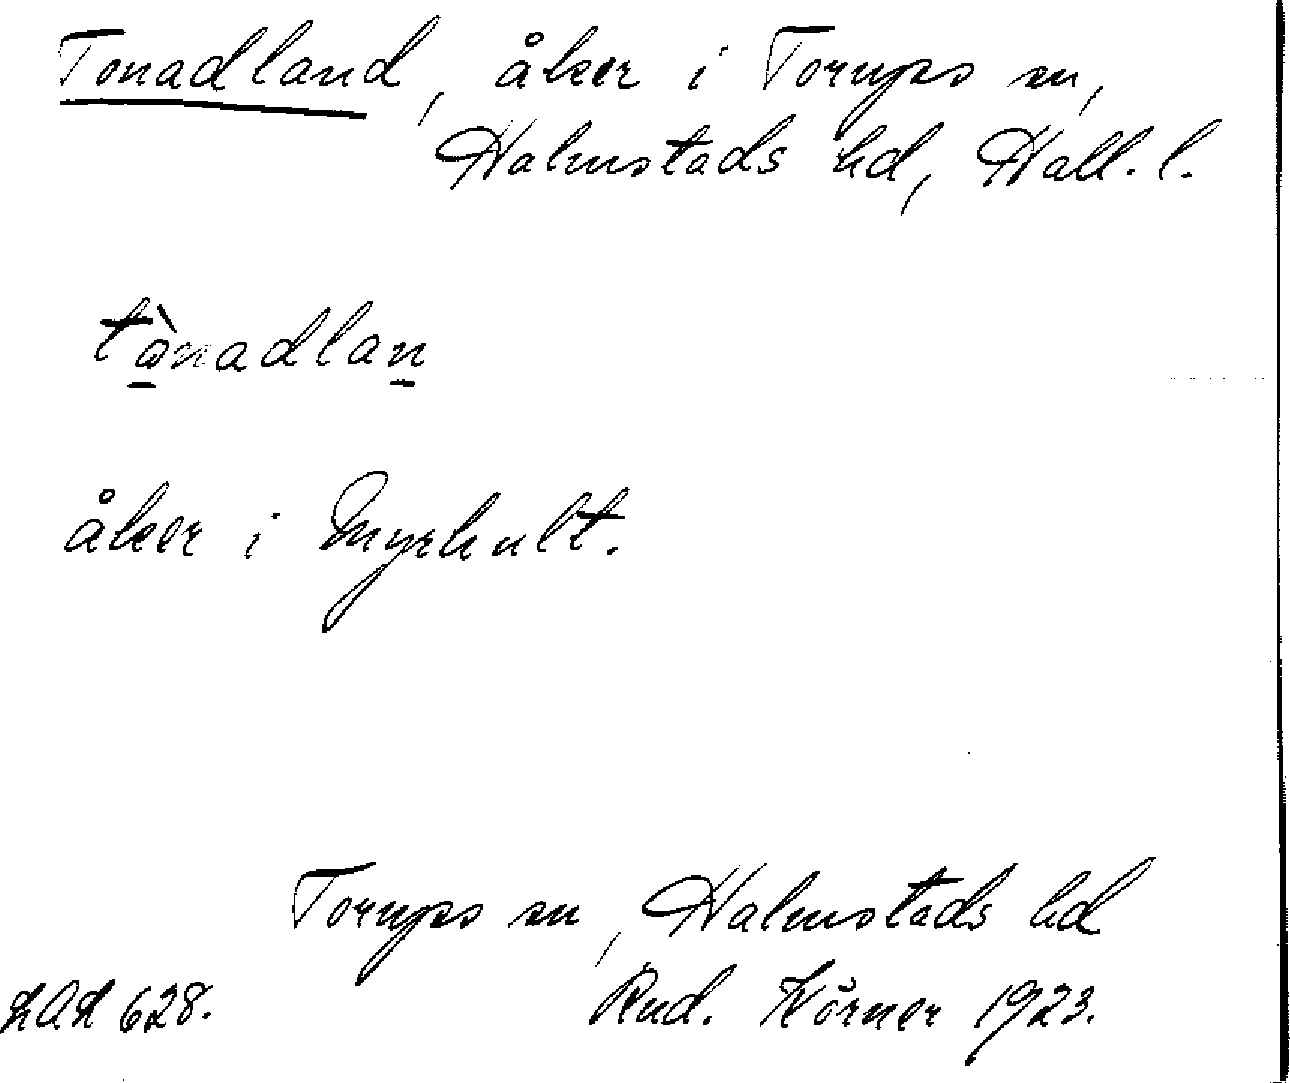 Tonadland, åker i Torups sn,
Halmstads hd, Hall. l.
tònadlan
åker i Myrhult.
Torups sn, Halmstads hd
LAL 628.
Rud. Körner 1923.